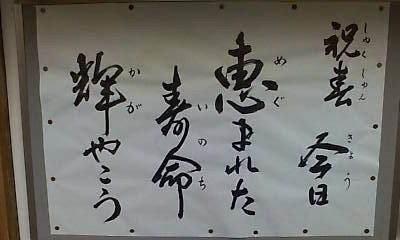 祝春 今日
恵まれた
寿命
輝やこう
しゅくしゅん
きょう
めぐ
いのち
かが